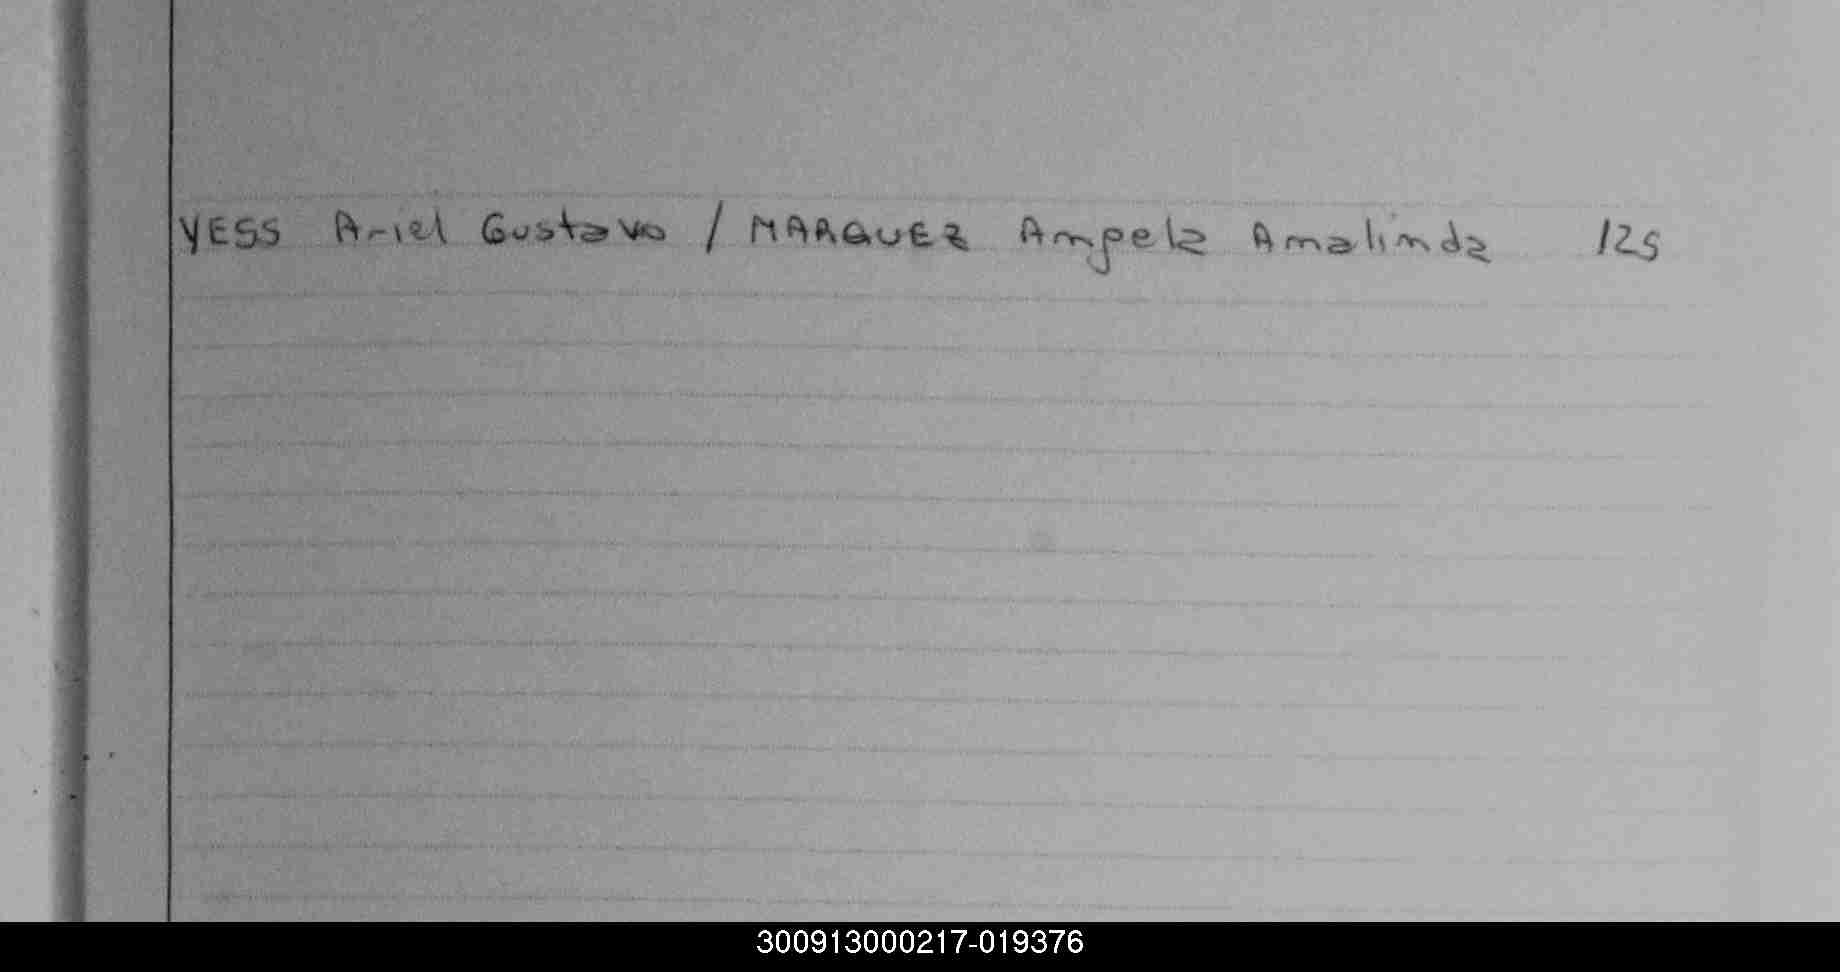 YESS Ariel Gustavo / MARQUEZ Angela Amalinda 125
300913000217-019376